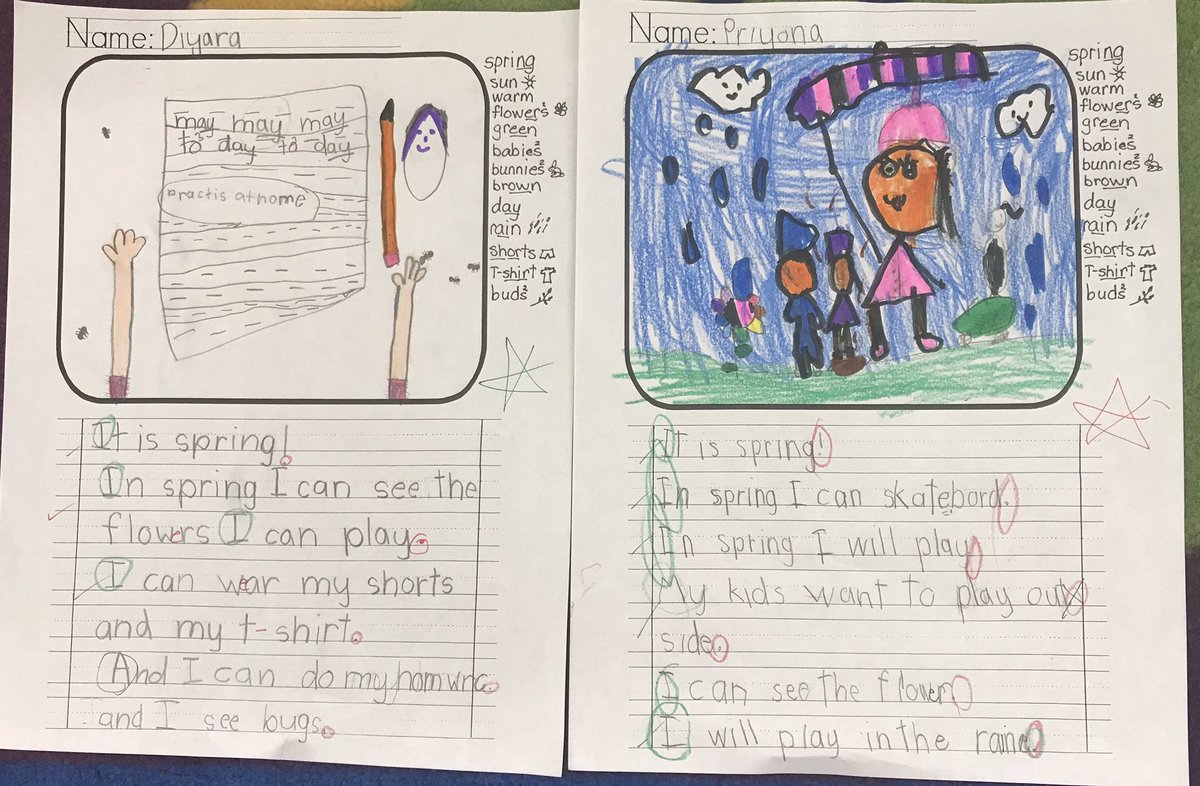 Name: Diyara
may may may
to day to day
practis at home
spring
sun
warm
flowers
green
babies
bunnies
brown
day
rain
shorts
T-shirt
buds
It is spring!
In spring I can see the
flowers I can play.
I can wear my shorts
and my t-shirt.
And I can do my homwrc.
and I see bugs.
Name: Priyona
spring
sun
warm
flowers
green
babies
bunnies
brown
day
rain
shorts
T-shirt
buds
It is spring!
In spring I can skatebord.
In spring I will play.
My kids want to play out
side.
I can see the flower.
I will play in the raine.